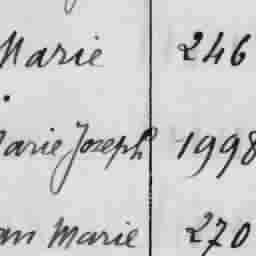 Marie 246
Marie Joseph 1998
an Marie 270